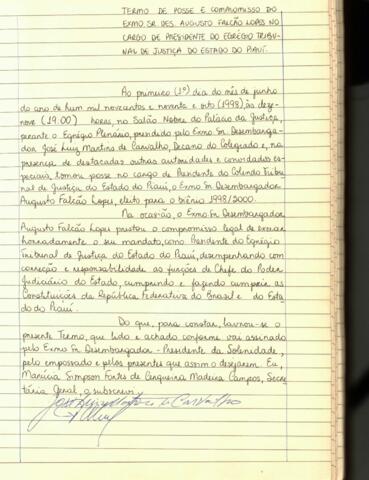 TERMO DE POSSE E COMPROMISSO DO
EXMO. SR. DES. AUGUSTO FALCÃO LOPES NO
CARGO DE PRESIDENTE DO EGRÉGIO TRIBU-
NAL DE JUSTIÇA DO ESTADO DO PIAUÍ.
Ao primeiro (1º) dia do mês de junho
do ano de hum mil novecentos e noventa e oito (1998) às deze-
nove (19:00) horas, no Salão Nobre do Palácio da Justiça,
perante o Egrégio Plenário, presidido pelo Exmo. Sr. Desembarga-
dor José Luiz Martins de Carvalho, Decano do Colegiado e, na
presença de destacadas outras autoridades e convidados es-
peciais, tomou posse no cargo de Presidente do Colendo Tribu-
nal de Justiça do Estado do Piauí, o Exmo. Sr. Desembargador
Augusto Falcão Lopes, eleito para o biênio 1998/2000.
Na ocasião, o Exmo. Sr. Desembargador
Augusto Falcão Lopes prestou o compromisso legal de exercer
honradamente o seu mandato, como Presidente do Egrégio
Tribunal de Justiça do Estado do Piauí, desempenhando com
correção e responsabilidade as funções de Chefe do Poder
Judiciário do Estado, cumprindo e fazendo cumprir as
Constituições da República Federativa do Brasil e do Esta-
do do Piauí.
Do que, para constar, lavrou-se o
presente Termo, que lido e achado conforme vai assinado
pelo Exmo. Sr. Desembargador - Presidente da Solenidade,
pelo empossado e pelos presentes que assim o desejarem. Eu,
Marúcia Simpson Fortes de Cerqueira Madeira Campos, Secre-
tária Geral, o subscrevi.
José Luiz Martins de Carvalho